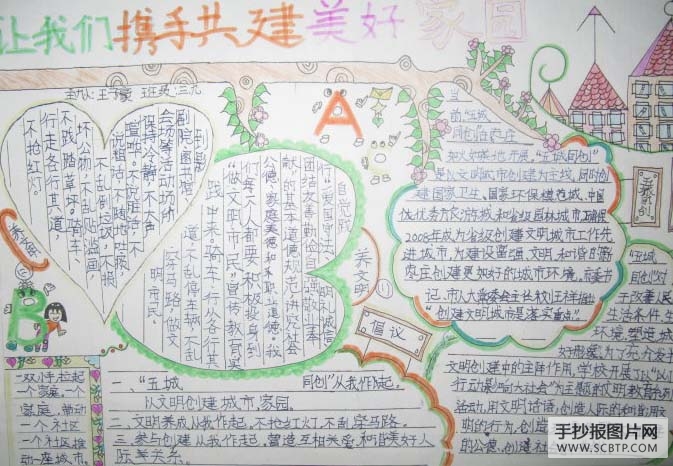 让我们携手共建美好家园
班级:三九
到影
剧院、图书馆、
会场等活动场所
保持冷静,不大声
喧哗。不闯红灯,不
说粗话,不随地吐痰
不乱倒垃圾,不损
坏公物,不乱贴滥画,
不践踏草坪。骑车、
行走各行其道,
不抢红灯。
A
B
自觉践
行“爱国守法、明礼诚信、
团结友善、勤俭自强、敬业奉
献”的基本道德规范,讲究社会
公德、家庭美德和职业道德。我
们每个人都要积极投身到
“做文明市民”宣传教育实
践中来。骑车、行人各行其
道,不乱停车辆,不乱
穿马路,做文
明市民。
养文明
当
前,“五城
同创”
如火如荼地开展。“五城同创”
是以文明城市创建为主线,同时创
建国家卫生、国家环保模范城、中国
优秀旅游城和省级园林城市
2008年成为省级创建文明城市工作先
进城市,为建设富强、文明、和谐的新
创建更加好的城市环境。市委书
记、市人大常委会主任
“创建文明城市是落实重点”
五城同创
“五城
同创”对
于改善人民
生活条件、生
环境,塑造城
好形象,为了充分发挥
文明创建中的主阵作用,学校开展了以“小手
行动影响大社会”为主题的文明教育系列
活动,用文明话语,创造人际的和谐,用
文明的行为,创造
的公德,创造社
倡议
一、“五城同创”从我作起。
以文明创建城市,家园。
二、文明养成从我作起,不抢红灯,不乱穿马路。
三、参与创建从我作起,营造互相关爱,和谐美好人
际关系。
“双小手拉起
一个家庭,一个
家庭,带动
一个社区,
一个社区推
动一座城市。
手抄报图片网
WWW.SCBTP.COM